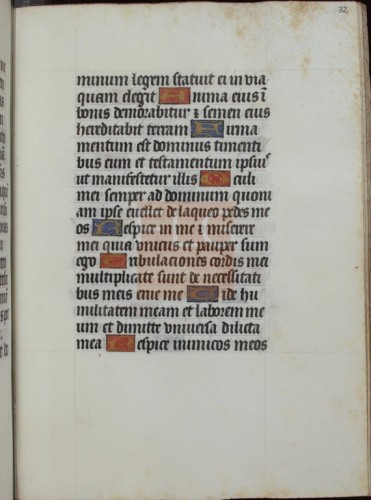 32
minum legem statuit ei in via
quam elegit Anima eius ī
bonis demorabitur ⁊ semen eius
hereditabit terram Firma
mentum est dominus timenti
bus eum et testamentum ipsius
ut manifestetur illis Oculi
mei semper ad dominum quoni
am ipse euellet de laqueo pedes me
os Respice in me ⁊ miserere
mei quia vnicus et pauper sum
ego Tribulaciones cordis mei
multiplicate sunt de necessitati
bus meis erue me Vide hu
militatem meam et laborem me
um et dimitte vniuersa delicta
mea Respice inimicos meos